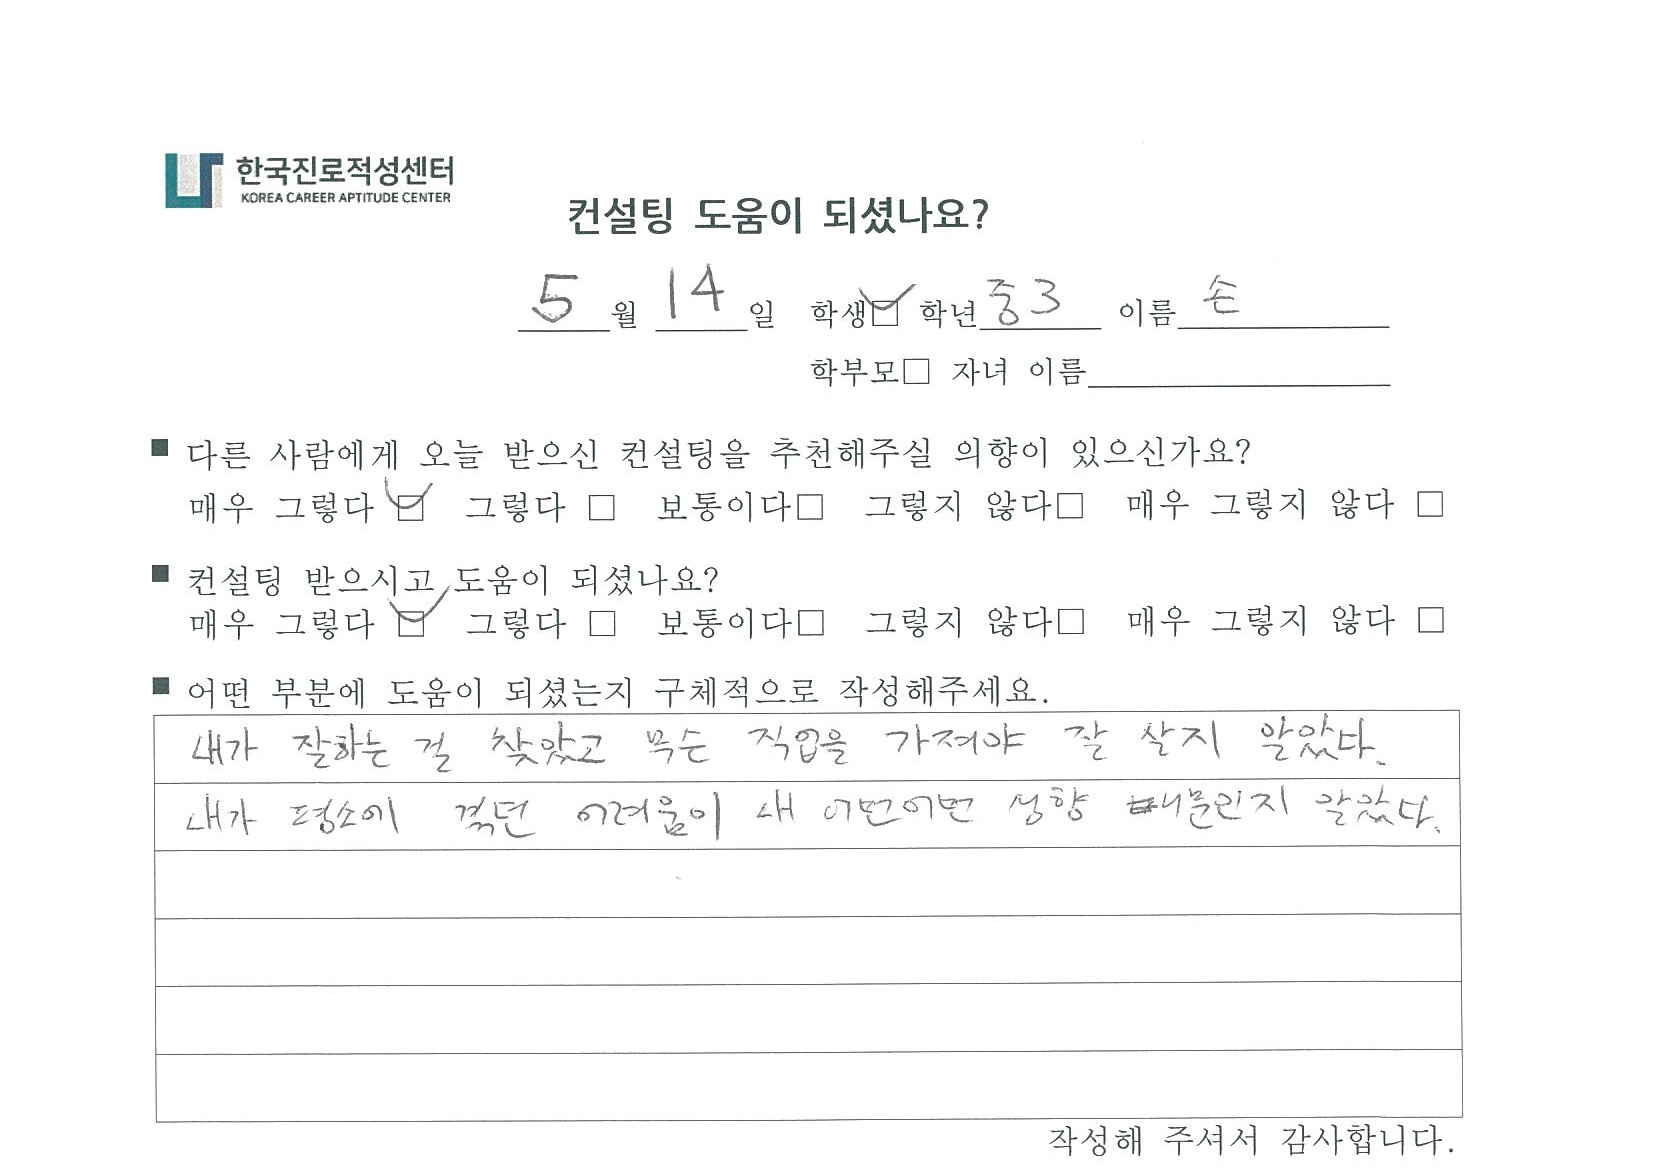 한국진로적성센터
KOREA CAREER APTITUDE CENTER
컨설팅 도움이 되셨나요?
5월 14일 학생☑ 학년 중3 이름 손
학부모□ 자녀 이름
■ 다른 사람에게 오늘 받으신 컨설팅을 추천해주실 의향이 있으신가요?
매우 그렇다 ☑ 그렇다 □ 보통이다□ 그렇지 않다□ 매우 그렇지 않다 □
■ 컨설팅 받으시고 도움이 되셨나요?
매우 그렇다 ☑ 그렇다 □ 보통이다□ 그렇지 않다□ 매우 그렇지 않다 □
■ 어떤 부분에 도움이 되셨는지 구체적으로 작성해주세요.
내가 잘하는 걸 찾았고 무슨 직업을 가져야 잘 살지 알았다.
내가 평소에 겪던 어려움이 내 어떤어떤 성향 때문인지 알았다.
작성해 주셔서 감사합니다.